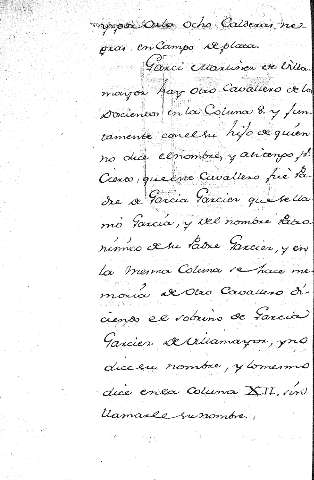 Orlo Ocho Calderas ne-
gras en Campo de plata.
Garci Martinez de Villa-
mayor hay otro Cavallero de los
Doscientos en la Coluna 8. y jun-
tamente con el su hijo de quien
no dice el nombre, y alcanzo p.r
Cierto, que este Cavallero fuè Pa-
dre de Garcia Garciez que se lla-
mó Garcia, y del nombre Patro-
nimico de su Padre Garciez, y en
la mesma Coluna se hace me-
moria de otro Cavallero di-
ciendo el sobrino de Garcia
Garciez de Villamayor, y no
dice su nombre, y lo mesmo
dice en la Coluna XII, sin
llamarle su nombre.